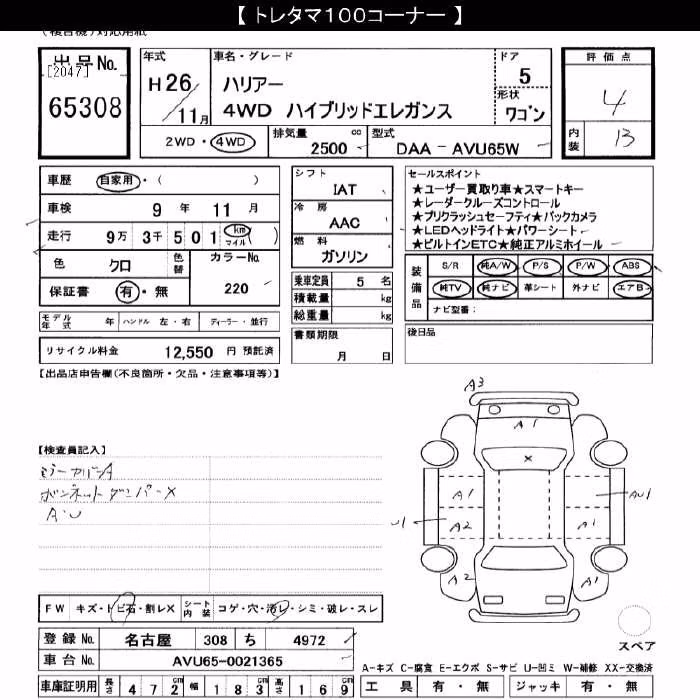 【 トレタマ100コーナー 】
(複合機)対応用紙
出品No.
[2047]
65308
年式
H26/11月
車名・グレード
ハリアー
4WD ハイブリッドエレガンス
ドア
5
形状
ワゴン
2WD・4WD
排気量
2500 cc
型式
DAA - AVU65W
評価点
4
内装
B
車歴 自家用・( )
車検 9年 11月
走行 9万 3千 5 0 1 km マイル )
色 クロ 色替
カラーNo.
220
保証書 有・無
モデル年式 年 ハンドル 左・右 ディーラー・並行
リサイクル料金 12,550 円 預託済
シフト
IAT
冷房
AAC
燃料
ガソリン
乗車定員 5 名
積載量 kg
総重量 kg
書類期限
月 日
セールスポイント
★ユーザー買取り車★スマートキー
★レーダークルーズコントロール
★プリクラッシュセーフティ★バックカメラ
★LEDヘッドライト★パワーシート
★ビルトインETC★純正アルミホイール
装備品
S/R 純A/W P/S P/W ABS
純TV 純ナビ 革シート 外ナビ エアB
ナビ型番:
後日品
【出品店申告欄(不良箇所・欠品・注意事項等)】
【検査員記入】
ミラーカバーA
ボンネットダンパーX
A・U
A3
A1
X
A1
AU1
U1
A2
A1
A2
A1
スペア
FW キズ・トビ石・割レX
シート内装 コゲ・穴・汚レ・シミ・破レ・スレ
登録No. 名古屋 308 ち 4972
車台No. AVU65-0021365
車庫証明用 長さ 4 7 2 cm 幅 1 8 3 cm 高さ 1 6 9 cm
A-キズ C-腐食 E-エクボ S-サビ U-凹ミ W-補修 XX-交換済
工具 有・無 ジャッキ 有・無